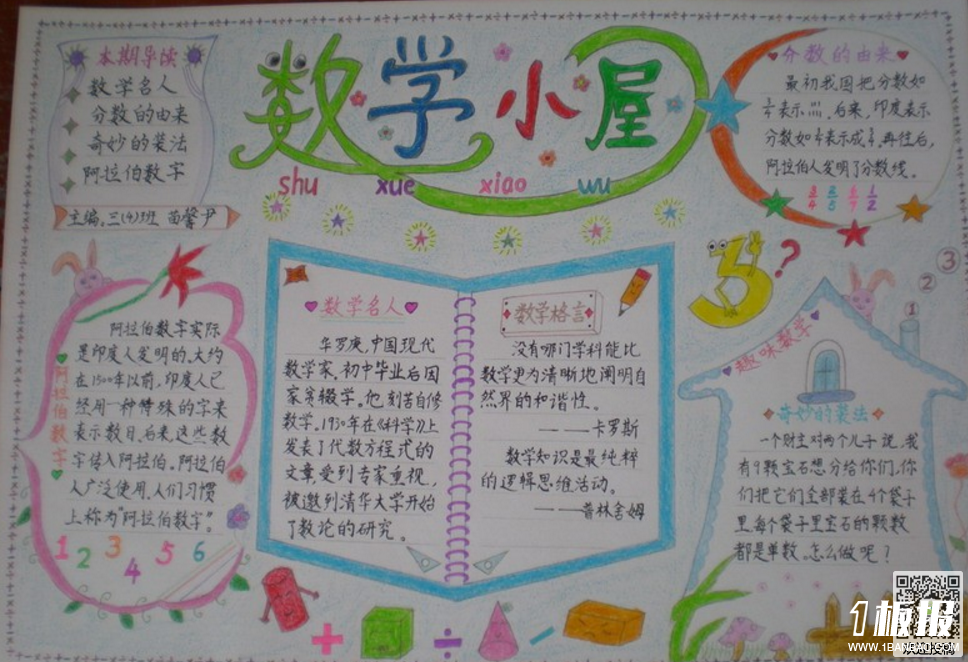 本期导读
数学名人
分数的由来
奇妙的装法
阿拉伯数字
主编:三(4)班 苗馨尹
数学小屋
shu xue xiao wu
分数的由来
最初我国把分数如
表示 后来,印度表示
分数如 表示成 再往后,
阿拉伯人发明了分数线。
3/4 2/5 6/7 1/2
阿拉伯数字
阿拉伯数字实际
是印度人发明的,大约
在1500年以前,印度人已
经用一种特殊的字来
表示数目,后来,这些数
字传入阿拉伯。阿拉伯
人广泛使用,人们习惯
上称为“阿拉伯数字”。
1 2 3 4 5 6
数学名人
华罗庚,中国现代
数学家、初中毕业后因
家贫辍学。他刻苦自修
数学,1930年在《科学》上
发表了代数方程式的
文章,受到专家重视,
被邀到清华大学开始
了数论的研究。
数学格言
没有哪门学科能比
数学更为清晰地阐明自
然界的和谐性。
——卡罗斯
数学知识是最纯粹
的逻辑思维活动。
——普林舍姆
+ ÷ -
3?
① ② ③
趣味数学
奇妙的装法
一个财主对两个儿子说,我
有9颗宝石想分给你们,你
们把它们全部装在4个袋子
里,每个袋子里宝石的颗数
都是单数。怎么做呢?
1板报
WWW.1BANBAO.COM
欢迎投稿